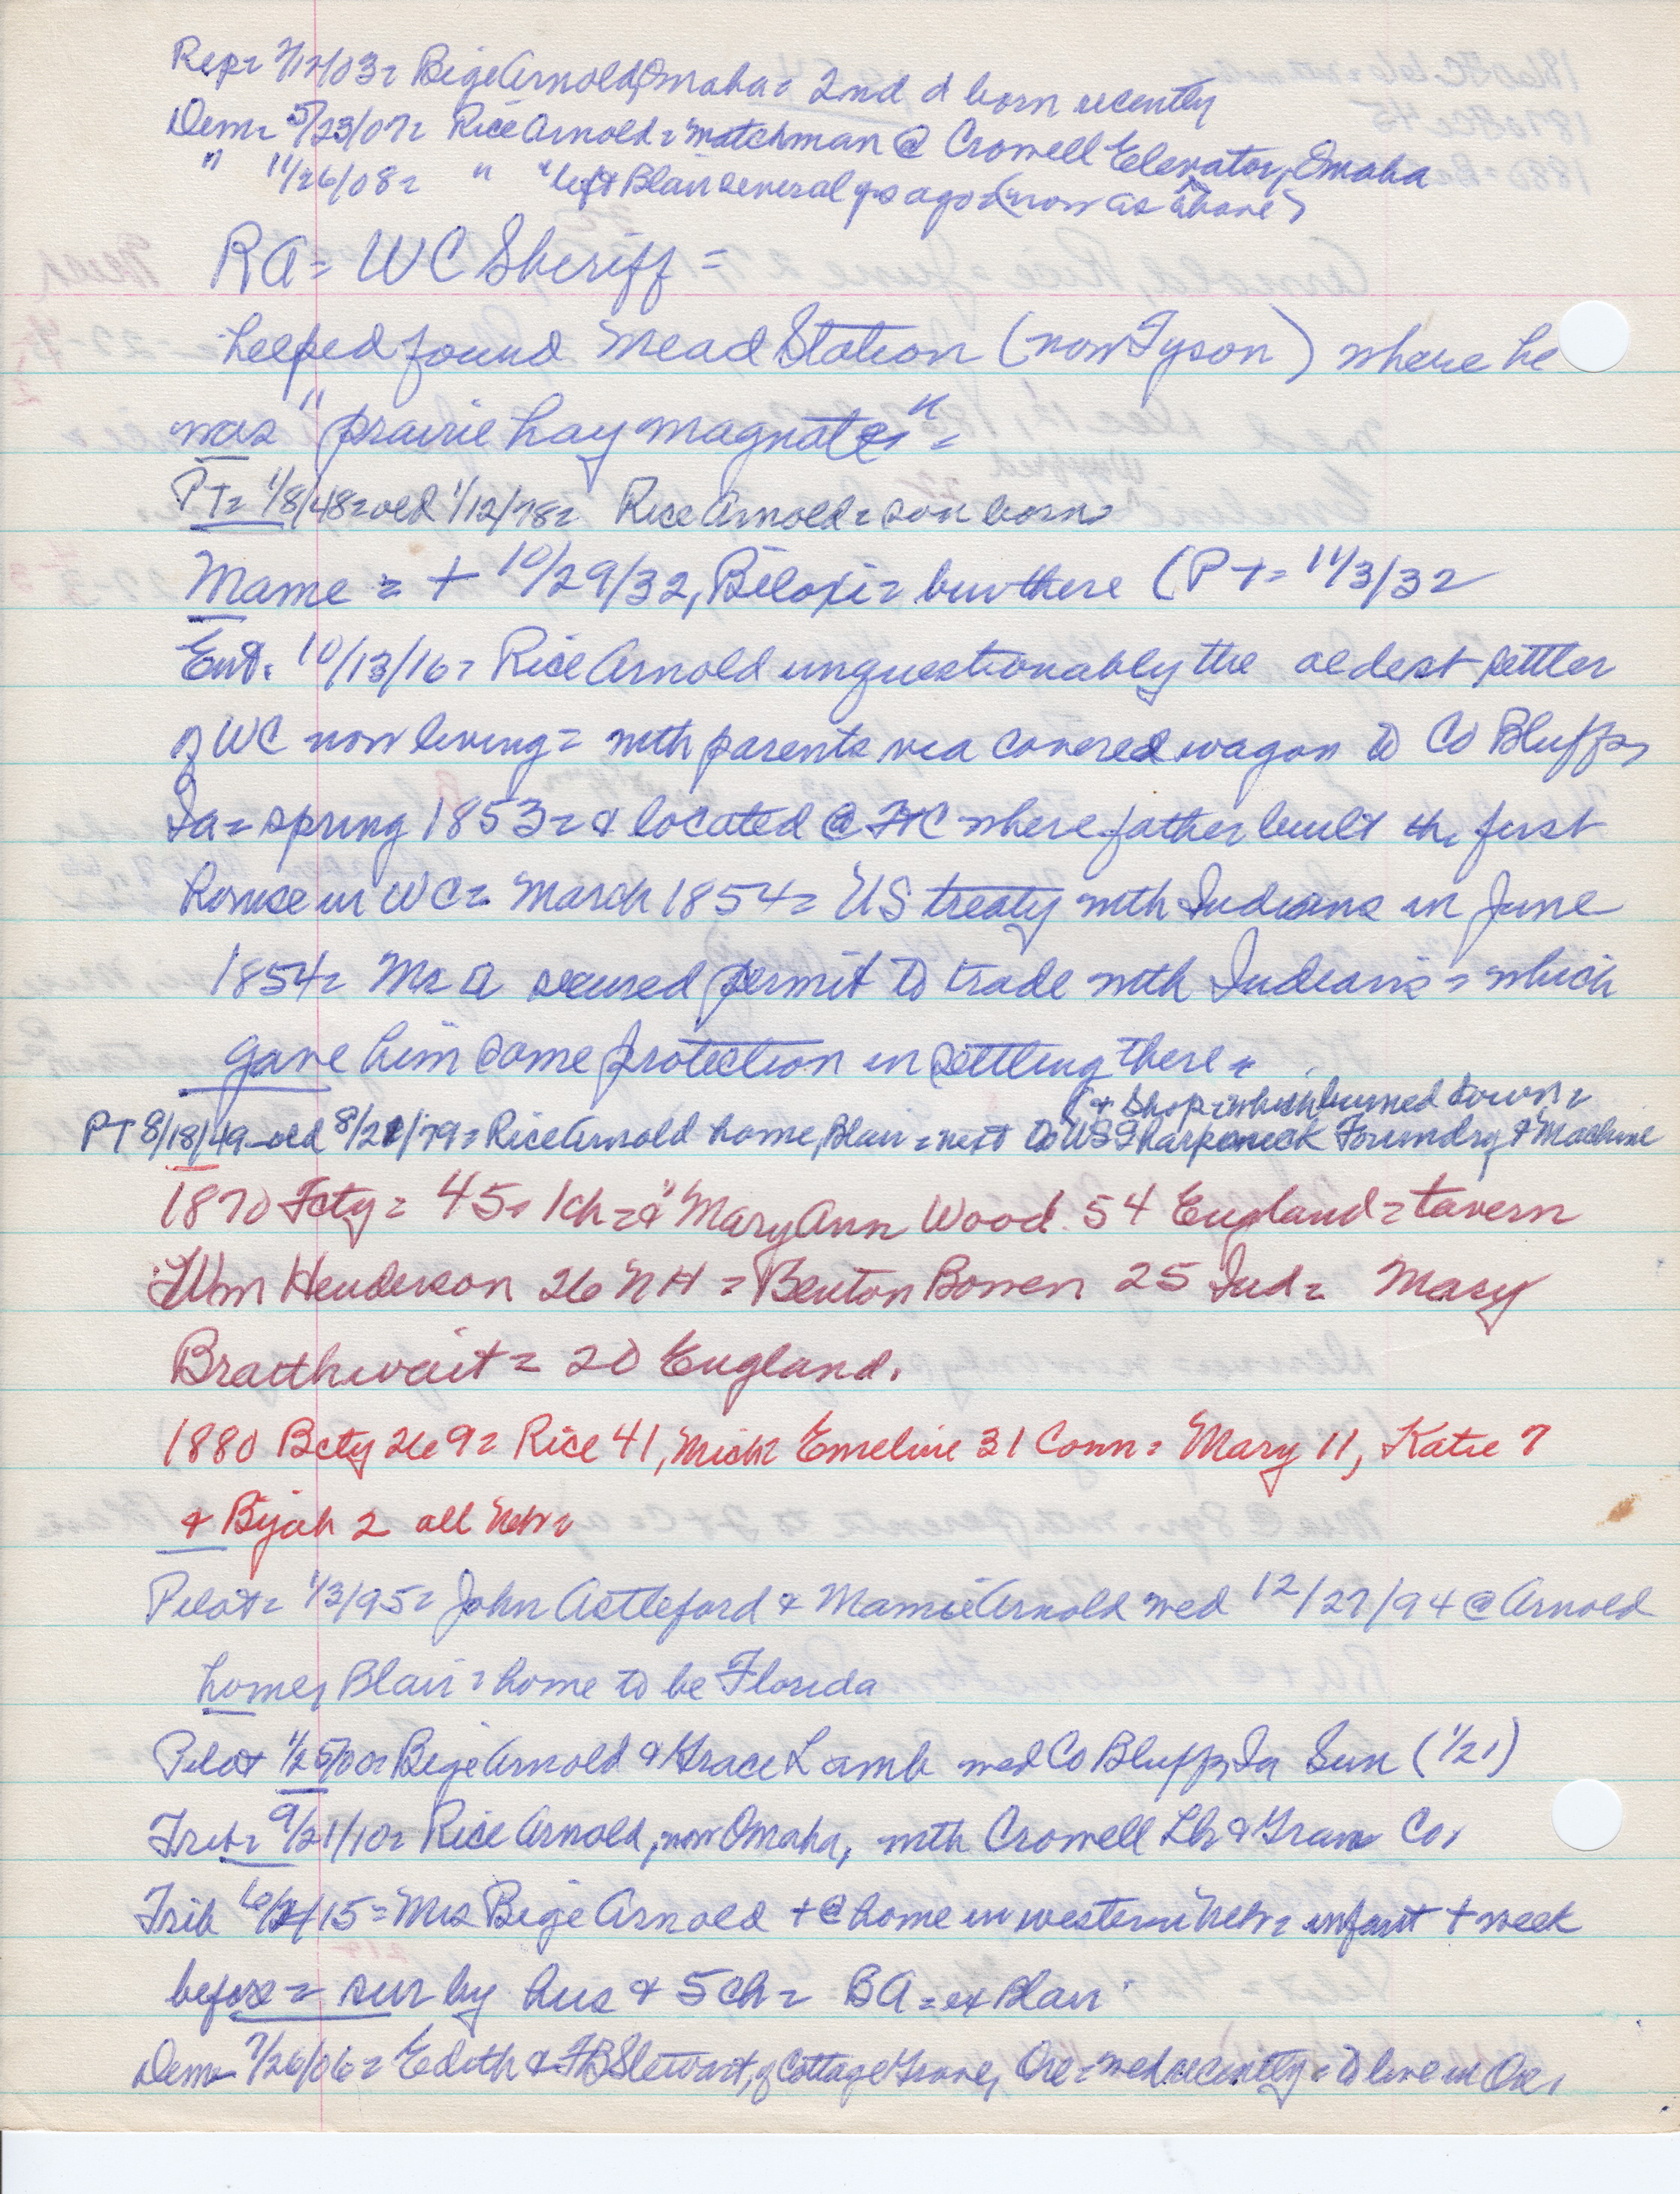 Rep= 7/12/03= Bige Arnold, Omaha= 2nd d born recently
Dem= 5/23/07= Rice Arnold= watchman @ Crowell Elevator, Omaha
" 11/26/08= " " left Blair several yrs ago (now as above)
RA= WC Sheriff=
helped found Mead Station (now Tyson) where he
was "prairie hay magnate"=
PT= 1/8/48= old 1/12/78= Rice Arnold= son born=
Mame = + 10/29/32, Biloxi= bur there (PT= 11/3/32
Ent. 10/13/16= Rice Arnold unquestionably the oldest settler
of WC now living= with parents via covered wagon to Co Bluffs,
Ia= spring 1853= & located @ FtC where father built the first
house in WC= March 1854= US treaty with Indians in June
1854= Mr A secured permit to trade with Indians= which
gave him some protection in settling there=
+ Shop= which burned down=
PT 8/18/49 old 8/21/79= Rice Arnold home, Blair= next to WS Sharpeneck Foundry & Machine
1870 Fcty= 45= 1ch= & "Mary Ann Wood 54 England= tavern
Wm Henderson 26 NH = Benton Bowen 25 Ind= Mary
Braithwait= 20 England.
1880 Bcty 269= Rice 41, Mich= Emeline 31 Conn= Mary 11, Katie 7
& Bijah 2 all Neb=
Pilot= 1/3/95= John Astleford & Mamie Arnold wed 12/27/94 @ Arnold
home, Blair= home to be Florida
Pilot 1/25/00= Bige Arnold & Grace Lamb wed Co Bluffs, Ia Sun (1/21)
Trib= 9/21/10= Rice Arnold, now Omaha, with Crowell Lbr & Grain Co.
Trib 15= Mrs Bige Arnold + @ home in western Nebr= infant + week
before= sur by hus & 5 ch= BA= ex Blair
Dem= 7/26/06= Edith & FB Stewart, of Cottage Grove, Ore= wed recently= to live in Ore.